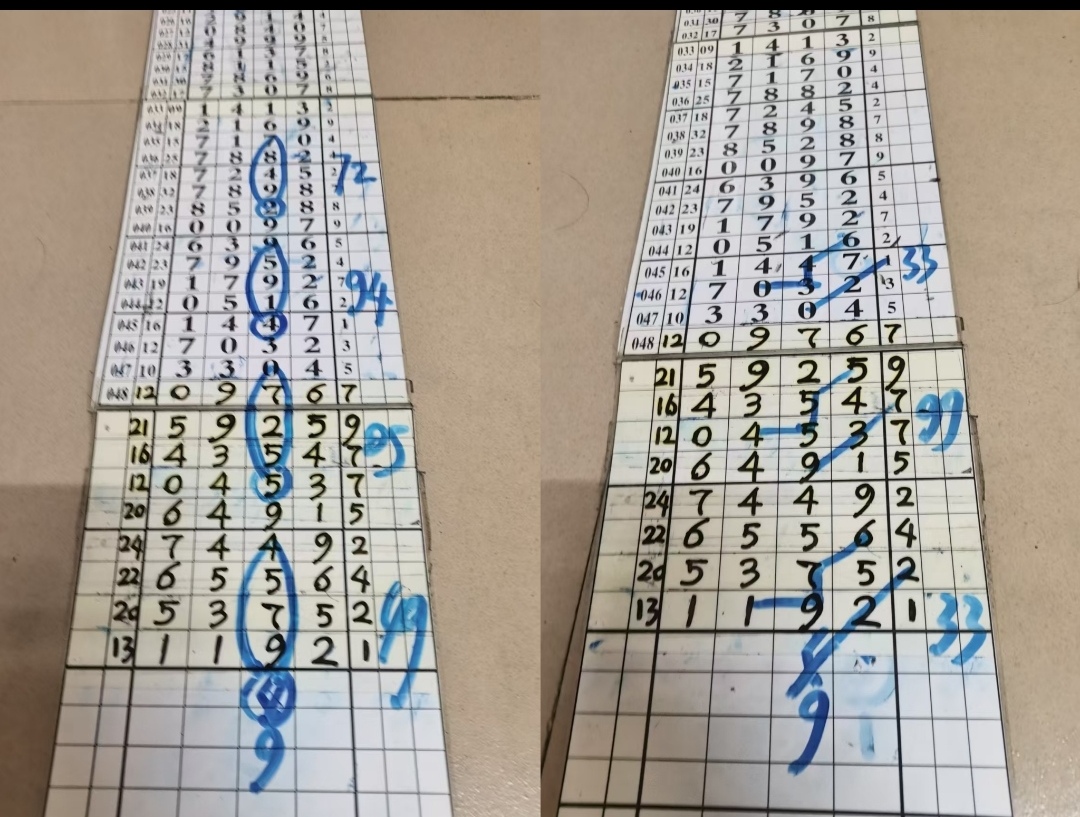 7 3 0 7 8
033 09 1 4 1 3 2
034 18 2 1 6 9 9
035 15 7 1 7 0 4
036 25 7 8 8 2 4
037 18 7 2 4 5 2
038 32 7 8 9 8 7
039 23 8 5 2 8 8
040 16 0 0 9 7 9
041 24 6 3 9 6 5
042 23 7 9 5 2 4
043 19 1 7 9 2 7
044 12 0 5 1 6 2
045 16 1 4 4 7 1
046 12 7 0 3 2 3
047 10 3 3 0 4 5
048 12 0 9 7 6 7
21 5 9 2 5 9
16 4 3 5 4 7
12 0 4 5 3 7
20 6 4 9 1 5
24 7 4 4 9 2
22 6 5 5 6 4
20 5 3 7 5 2
13 1 1 9 2 1
72
94
95
49
9
032 17 7 3 0 7 8
033 09 1 4 1 3 2
034 18 2 1 6 9 9
035 15 7 1 7 0 4
036 25 7 8 8 2 4
037 18 7 2 4 5 2
038 32 7 8 9 8 7
039 23 8 5 2 8 8
040 16 0 0 9 7 9
041 24 6 3 9 6 5
042 23 7 9 5 2 4
043 19 1 7 9 2 7
044 12 0 5 1 6 2
045 16 1 4 4 7 1
046 12 7 0 3 2 3
047 10 3 3 0 4 5
048 12 0 9 7 6 7
21 5 9 2 5 9
16 4 3 5 4 7
12 0 4 5 3 7
20 6 4 9 1 5
24 7 4 4 9 2
22 6 5 5 6 4
20 5 3 7 5 2
13 1 1 9 2 1
33
99
33
9